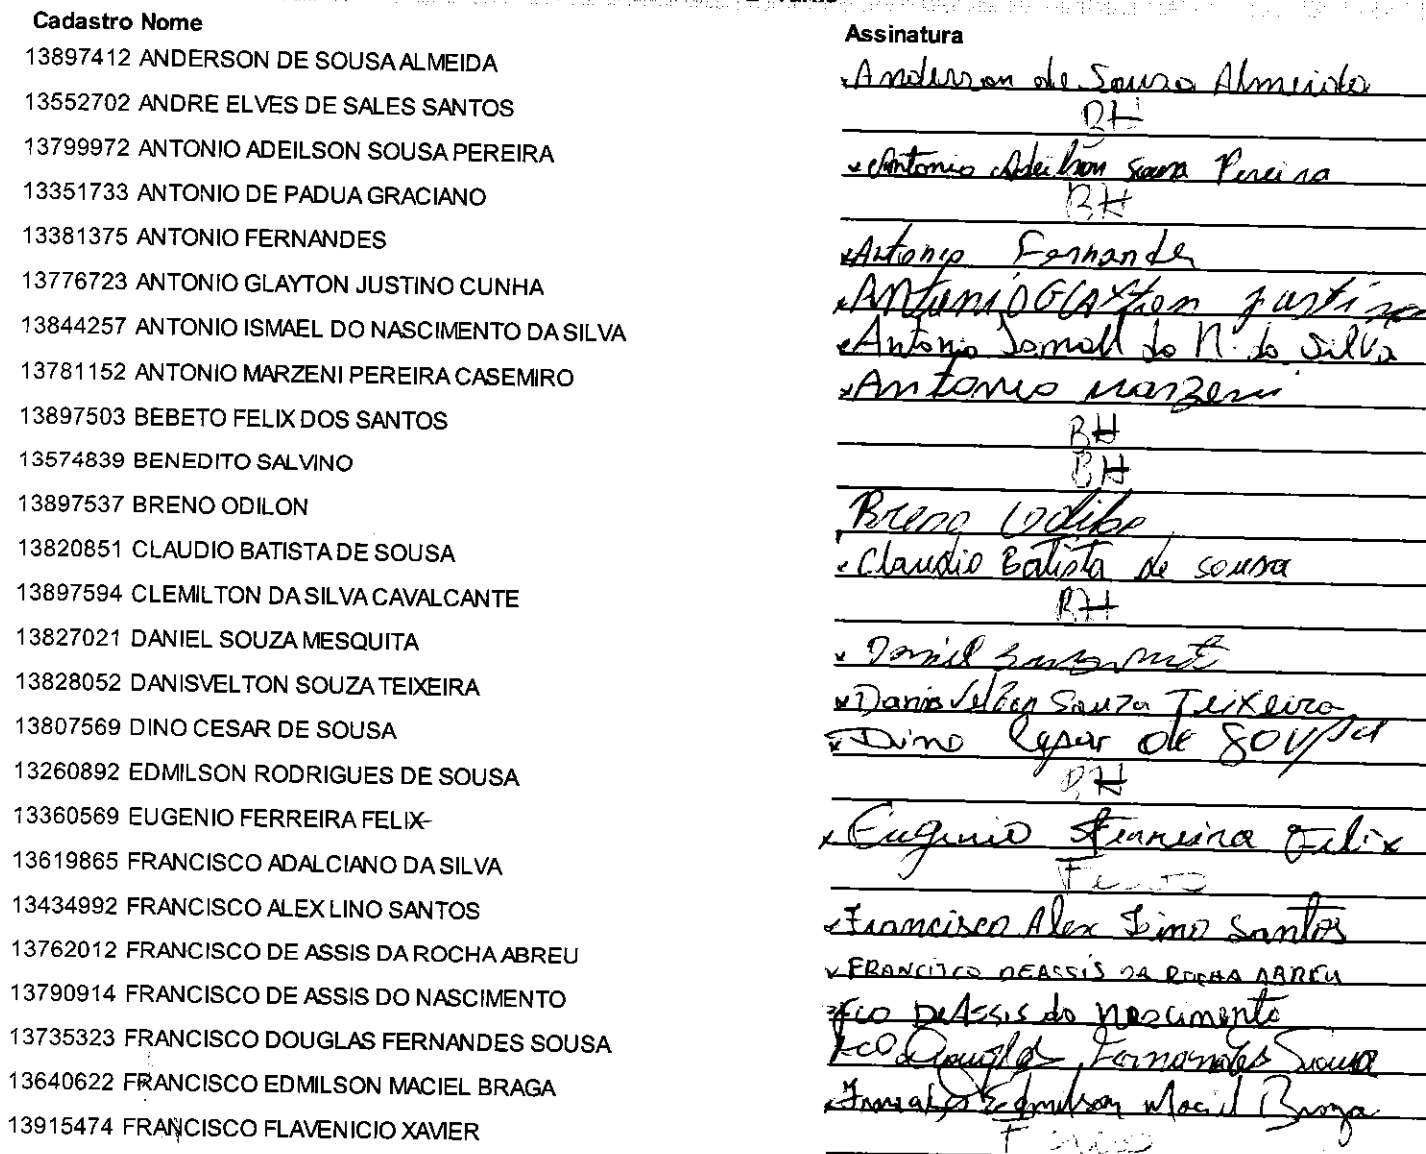 Cadastro Nome Assinatura
13897412 ANDERSON DE SOUSA ALMEIDA Anderson de Sousa Almeida
13552702 ANDRE ELVES DE SALES SANTOS BH
13799972 ANTONIO ADEILSON SOUSA PEREIRA Antonio Adeilson Sousa Pereira
13351733 ANTONIO DE PADUA GRACIANO BH
13381375 ANTONIO FERNANDES Antonio Fernandes
13776723 ANTONIO GLAYTON JUSTINO CUNHA Antonio Glayton justino
13844257 ANTONIO ISMAEL DO NASCIMENTO DA SILVA Antonio Ismael do N. da Silva
13781152 ANTONIO MARZENI PEREIRA CASEMIRO Antonio marzeni
13897503 BEBETO FELIX DOS SANTOS BH
13574839 BENEDITO SALVINO BH
13897537 BRENO ODILON Breno
13820851 CLAUDIO BATISTA DE SOUSA Claudio Batista de sousa
13897594 CLEMILTON DA SILVA CAVALCANTE BH
13827021 DANIEL SOUZA MESQUITA Daniel
13828052 DANISVELTON SOUZA TEIXEIRA Danisvelton Souza Teixeira
13807569 DINO CESAR DE SOUSA Dino Cesar de Sousa
13260892 EDMILSON RODRIGUES DE SOUSA BH
13360569 EUGENIO FERREIRA FELIX Eugenio Ferreira Felix
13619865 FRANCISCO ADALCIANO DA SILVA
13434992 FRANCISCO ALEX LINO SANTOS Francisco Alex Lino Santos
13762012 FRANCISCO DE ASSIS DA ROCHA ABREU FRANCISCO DE ASSIS DA ROCHA ABREU
13790914 FRANCISCO DE ASSIS DO NASCIMENTO Fco De Assis do Nascimento
13735323 FRANCISCO DOUGLAS FERNANDES SOUSA Fco Douglas Fernandes Sousa
13640622 FRANCISCO EDMILSON MACIEL BRAGA Francisco Edmilson Maciel Braga
13915474 FRANCISCO FLAVENICIO XAVIER